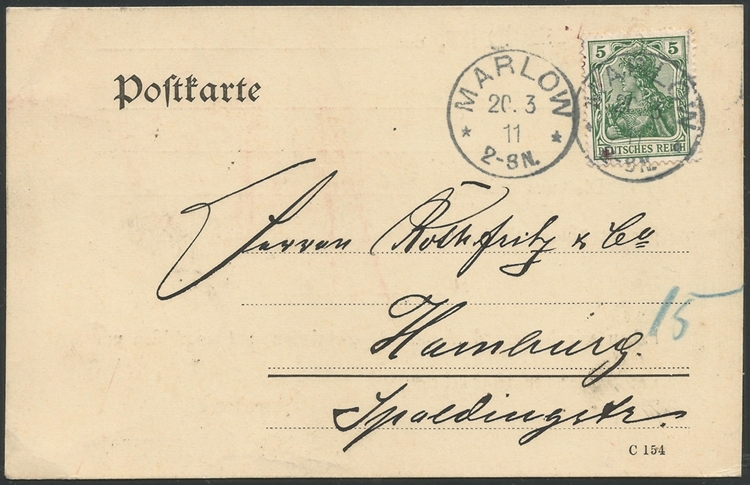 Postkarte
MARLOW
20. 3
11
2-8N.
5 5
DEUTSCHES REICH
MARLOW
-8N.
Herren Rothfritz & Co
Hamburg.
15
Spaldingstr.
C 154